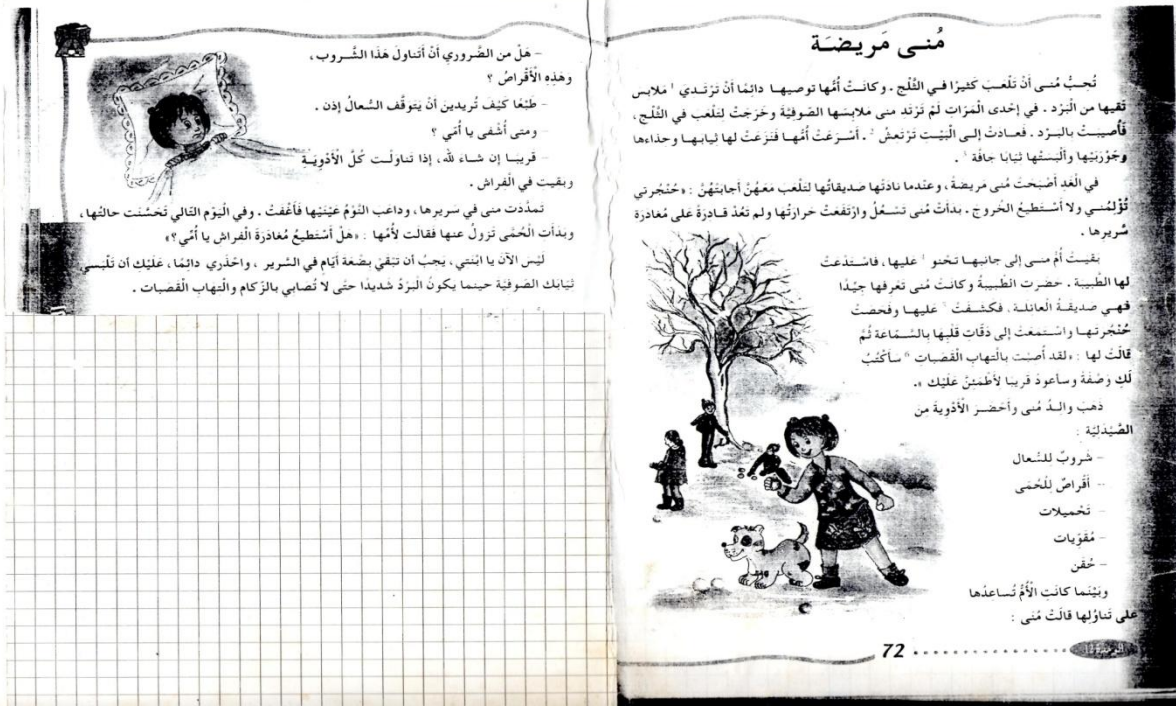 مُنى مَريضَة
تُحِبُّ مُنى أَنْ تَلْعَبَ كَثيرًا في الثَّلْج . وكانَتْ أُمُّها توصيها دائِمًا أَنْ تَرْتَدي ¹ مَلابِس
تَقيها مِنَ الْبَرْد . في إِحْدى الْمَرّاتِ لَمْ تَرْتَدِ منى مَلابِسَها الصّوفِيَّة وخَرَجَتْ لِتَلْعَب في الثَّلْج ،
فَأُصيبَتْ بِالبَرْد . فَعادَتْ إلى الْبَيْت تَرْتَعِشُ ² . أَسْرَعَتْ أُمُّها فَنَزَعَتْ لها ثِيابَها وحِذاءَها
وجَوْرَبَيْها وأَلْبَسَتْها ثِيابًا جافَّة .
في الْغَدِ أَصْبَحَتْ مُنى مَريضَةً ، وعِنْدَما نادَتْها صَديقاتُها لِتَلْعَبَ مَعَهُنَّ أَجابَتْهُنَّ : «حُنْجُرتي
تُؤْلِمُني ولا أَسْتَطيعُ الْخُروج . بَدَأَتْ مُنى تَسْعُلُ وارْتَفَعَتْ حَرارَتُها ولم تَعُدْ قادِرَةً على مُغادَرَة
سَريرها .
بَقِيَتْ أُمُّ مُنى إلى جانِبِها تَحْنو عليها ، فَاسْتَدْعَتْ
لها الطَّبيبة . حَضَرت الطَّبيبةُ وكانَتْ مُنى تَعْرِفها جَيِّدًا
فهي صَديقَةُ الْعائِلة ، فَكَشَفَتْ عَليها وفَحَصَتْ
حُنْجُرتَها واسْتَمَعَتْ إلى دَقّاتِ قَلْبِها بِالسَّمّاعة ثُمَّ
قالَتْ لها : «لقد أُصِبْت بالْتِهابِ الْقَصَباتِ سَأَكْتُبُ
لَكِ وَصْفَةً وسأعودُ قريبًا لأَطْمَئِنَّ عَلَيْك ».
ذَهَبَ والِدُ مُنى وأَحْضَرَ الْأَدْوِيَةَ مِن
الصَّيْدَلِيّة :
– شَروبٌ لِلسُّعال
– أَقْراصٌ لِلْحُمّى
– تَحْميلات
– مُقَوِّيات
– حُقَن
وبَيْنَما كانَتِ الْأُمُّ تُساعِدُها
على تَناوُلِها قالَتْ مُنى :
72
– هَلْ من الضَّروري أَنْ أَتَناولَ هَذا الشَّروب ،
وهَذِهِ الْأَقْراصُ ؟
– طَبْعًا كَيْفَ تُريدينَ أَنْ يَتَوقَّف السُّعالُ إذن .
– ومتى أُشْفى يا أُمّي ؟
– قريبًا إن شاء لله، إذا تناولْت كُلَّ الْأَدْوِيَةِ
وبقيت في الْفراش .
تمدَّدَت منى في سَريرها ، وداعَب النَّوْمُ عَيْنَيْها فَأَغْفَتْ . وفي الْيَوْم التّالي تَحَسَّنَت حالتُها ،
وبَدَأَت الْحُمّى تَزولُ عنها فقالت لأُمّها : «هَلْ أَسْتَطيعُ مُغادَرَةَ الْفراش يا أُمّي ؟»
لَيْس الآنَ يا ابْنَتي ، يَجِبُ أن تَبْقَيْ بِضْعَة أيّام في السَّرير ، واحْذَري دائِمًا ، عَلَيْك أن تَلْبَسي
ثيابَك الصّوفيّة حينما يكونُ الْبَرْدُ شديدًا حتّى لا تُصابي بالزُّكام والْتِهابِ الْقَصَبات .